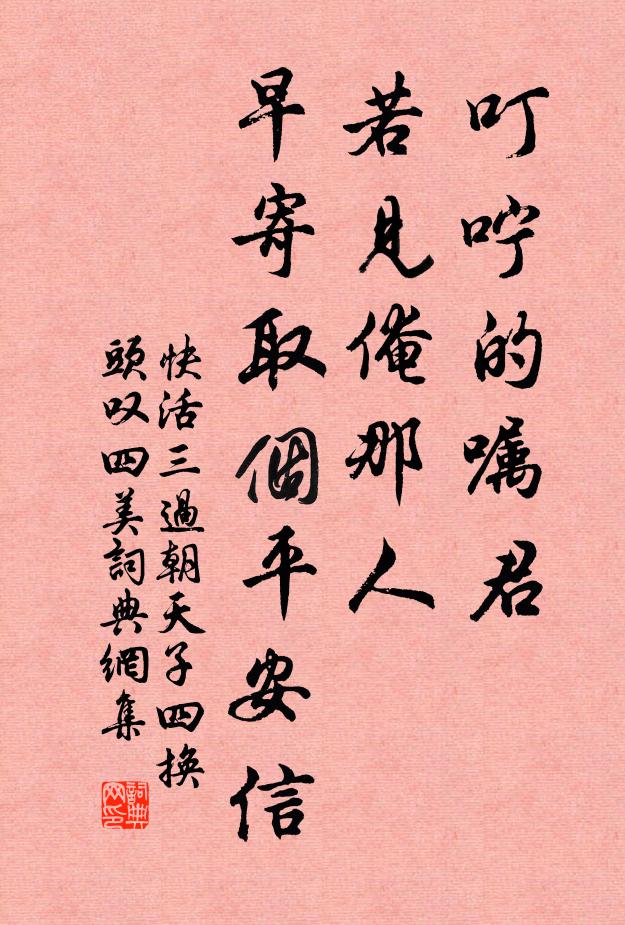 叮咛的嘱君
若見俺那人
早寄取個平安信
快活三過朝天子四換
頭叹四美詞典網集
詞典
网印